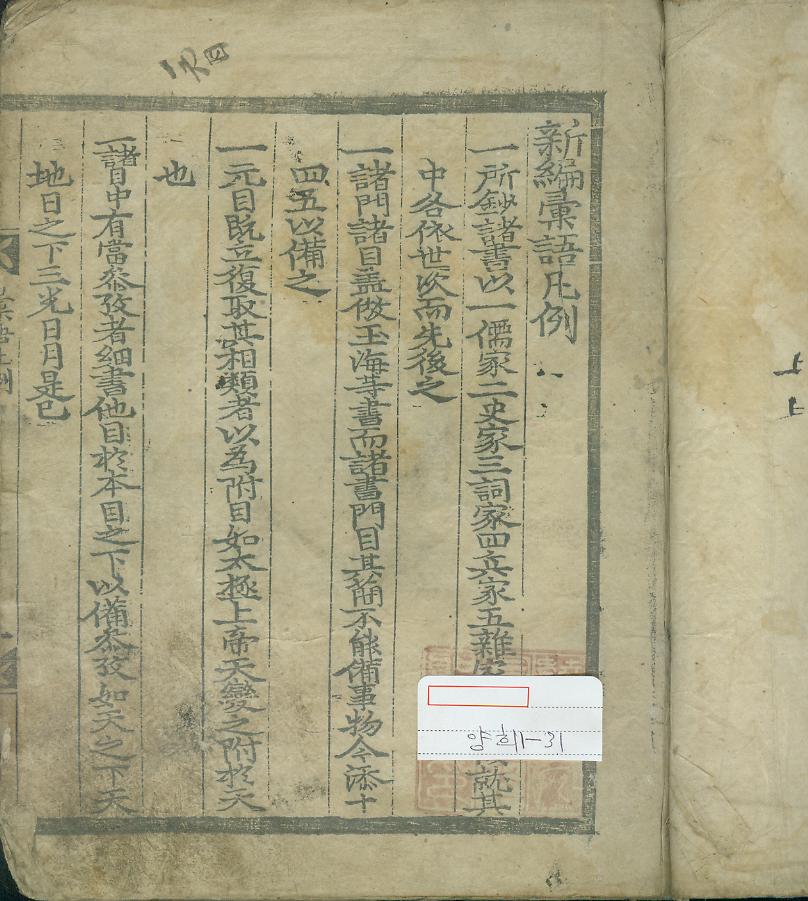 新編彙語凡例
一所鈔諸書以一儒家二史家三詞家四兵家五雜家 就其
中各依世次而先後之
一諸門諸目盖倣玉海等書而諸書門目其簡不能備事物今添十
四五以備之
一元目旣立復取其相類者以爲附目如太極上帝天變之附於天
也
一諸目中有當叅攷者細書他目於本目之下以備叅攷如天之下天
地日之下三光日月是已
양희1-31